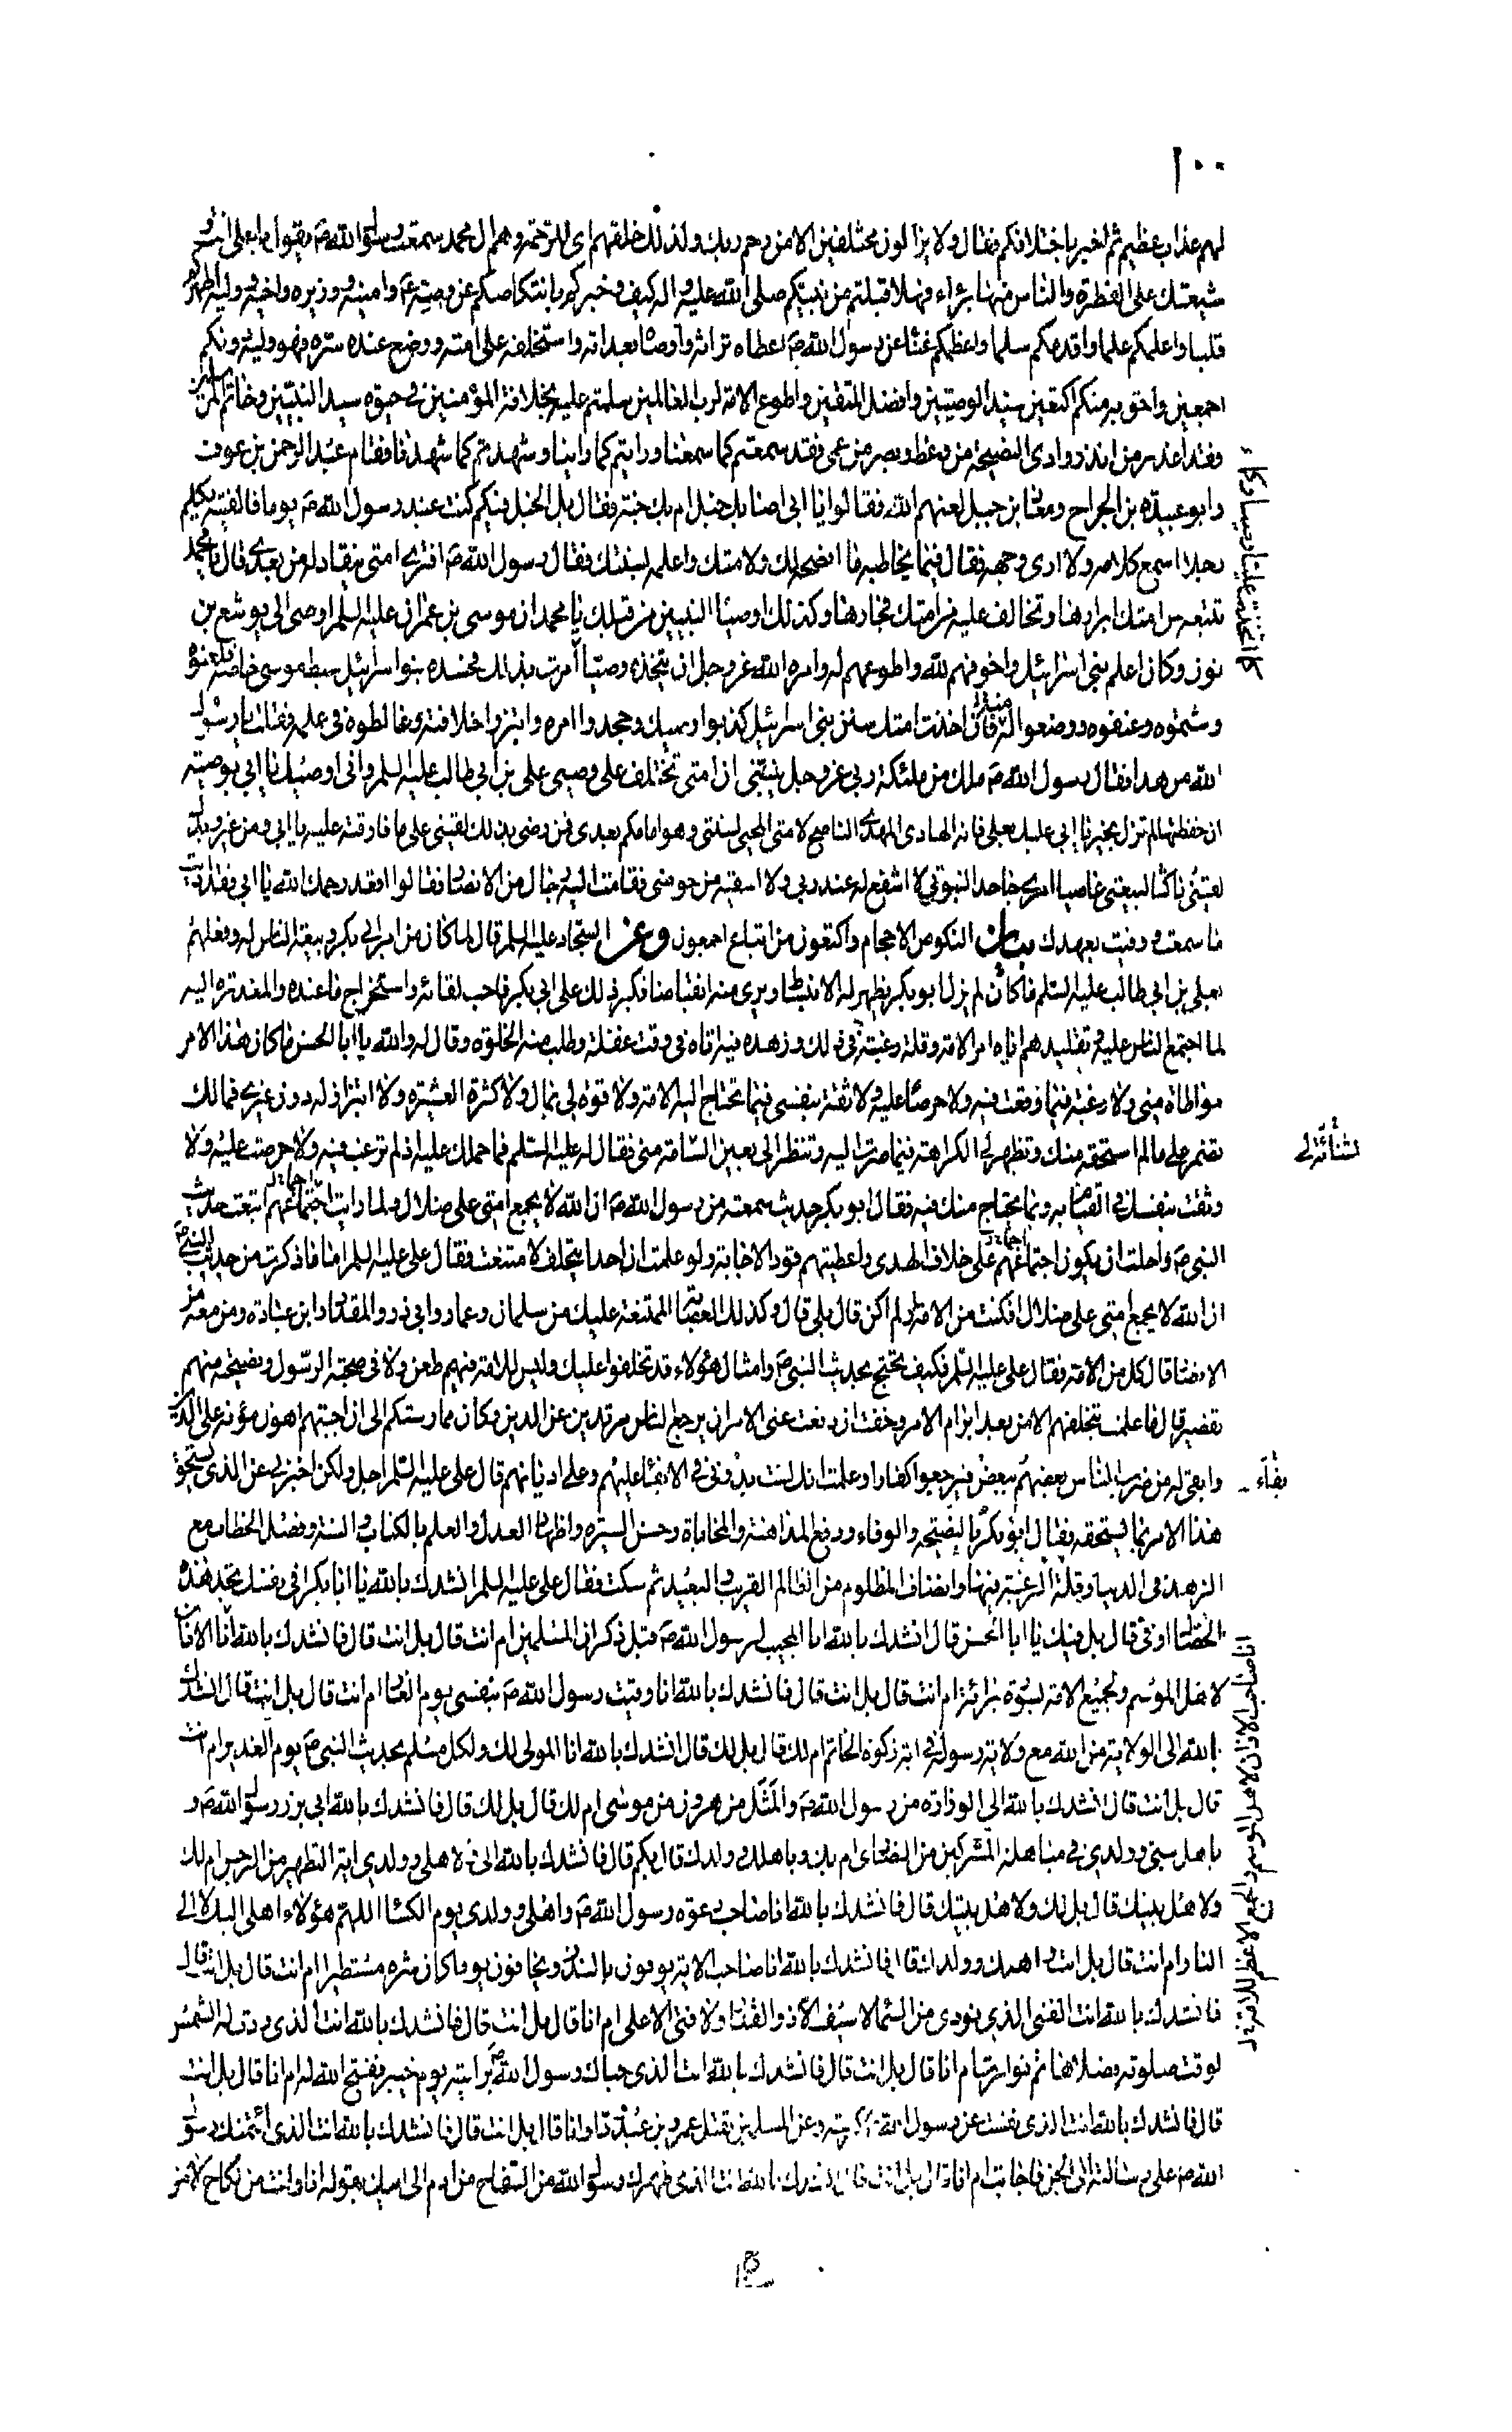 ١٠٠
لهم عذاب عظيم ثم اخبر باختلافكم فقال ولا يزالون مختلفين الا من رحم ربك ولذلك خلقهم اى للرحمة وهم ال محمد سمعت رسول الله ص يقول يا على انت و
شيعتك على الفطرة والناس منها براء فهلا قبلتم من نبيكم صلى الله عليه واله كيف وخبركم بانتكاصكم عن وصيته ع وامينه ووزيره واخيه ووليه اطهركم
قلبا واعلمكم علما واقدمكم سلما واعظمكم غناء عن رسول الله ص اعطاه تراثه واوصاه بعداته واستخلفه على امته ووضع عنده سره فهو وليه دونكم
اجمعين واحق به منكم اكتعين سيد الوصيين وافضل المتقين واطوع الامة لرب العالمين سلمتم عليه بخلافة المؤمنين فى حيوة سيد النبيين وخاتم المرسلين
فقد اعذر من انذر وادى النصيحة من وعظ وبصر من عمى فقد سمعتم كما سمعنا ورايتم كما راينا وشهدتم كما شهدنا فقام عبد الرحمن بن عوف
وابو عبيدة بن الجراح ومعاذ بن جبل لعنهم الله فقالوا يا ابى اصابك خبل ام بك جنة فقال بل الخبل فيكم كنت عند رسول الله ص يوما فالفيته يكلم
رجلا اسمع كلامه ولا ارى وجهه فقال فيما يخاطبه ما انصحه لك ولامتك واعلمه بسنتك فقال رسول الله ص افترى امتى تنقاد له من بعدى قال يا محمد
تتبعه من امتك ابرارها وتخالف عليه من امتك فجارها وكذلك اوصياء النبيين من قبلك يا محمد ان موسى بن عمران عليه السلم اوصى الى يوشع بن
نون وكان اعلم بنى اسرائيل واخوفهم لله واطوعهم له وامره الله عز وجل ان يتخذه وصيا امرت بذلك فحسده بنوا اسرائيل سبط موسى خاصة فلعنوه
وشتموه وعنفوه ووضعوا منه فان اخذت امتك سنن بنى اسرائيل كذبوا وصيك وجحدوا امره وابتزوا خلافته وغالطوه فى علمه فقلت يا رسول
الله من هذا فقال رسول الله ص ملك من ملئكة ربى عز وجل ينبئنى ان امتى تختلف على وصيى على بن ابى طالب عليه السلم وانى اوصيك يا ابى بوصية
ان حفظتها لم تزل بخير يا ابى عليك بعلى فانه الهادى المهدى الناصح لامتى المحيى لسنتى وهو امامكم بعدى فمن رضى بذلك لقينى على ما فارقته عليه يا ابى ومن غير وبدل
لقينى ناكثا لبيعتى عاصيا امرى جاحدا لنبوتى لا اشفع له عند ربى ولا اسقيه من حوضى فقامت اليه رجال من الانصار فقالوا اقعد رحمك الله يا ابى فقد اديت
ما سمعت ووفيت بعهدك بيان النكوص الاحجام واكتعون من اتباع اجمعون وعن السجاد عليه السلم قال لما كان من امر ابى بكر وبيعة الناس له وفعلهم
بعلى بن ابى طالب عليه السلم ما كان لم يزل ابو بكر يظهر له الانبساط ويرى منه انقباضا فكبر ذلك على ابى بكر فاحب لقائه واستخراج ما عنده والمعذرة اليه
لما اجتمع الناس عليه وتقليدهم اياه امر الامة وقلة رغبته فى ذلك وزهده فيه اتاه فى وقت غفلة وطلب منه الخلوة وقال له والله يا ابا الحسن ما كان هذا الامر
مواطاة منى ولا رغبة فيما وقعت فيه ولا حرصا عليه ولا ثقة بنفسى فيما تحتاج اليه الامة ولا قوة لى بمال ولا كثرة العشيرة ولا ابتزاز له دون غيرى فما لك
تضمر على ما لم استحقه منك وتظهر لى الكراهة فيما صرت اليه وتنظر الى بعين السامة منى فقال له عليه السلم فما حملك عليه اذ لم ترغب فيه ولا حرصت عليه ولا
وثقت بنفسك فى القيام به وبما يحتاج منك فيه فقال ابو بكر حديث سمعته من رسول الله ص ان الله لا يجمع امتى على ضلال ولما رايت اجتماعهم اتبعت حديث
النبى ص واحلت ان يكون اجتماعهم على خلاف الهدى واعطيتهم قود الاجابة ولو علمت ان احدا يتخلف لامتنعت فقال على عليه السلم اما ما ذكرت من حديث النبى ص
ان الله لا يجمع امتى على ضلال افكنت من الامة او لم اكن قال بلى قال وكذلك العصابة الممتنعة عليك من سلمان وعمار وابى ذر والمقداد وابن عبادة ومن معه من
الانصار قال كل من الامة فقال على عليه السلم فكيف تحتج بحديث النبى ص وامثال هؤلاء قد تخلفوا عليك وليس للامة فيهم طعن ولا فى صحبة الرسول ونصيحته منهم
تقصير قال ما علمت بتخلفهم الا من بعد ابرام الامر وخفت ان دفعت عنى الامر ان يرجع الناس مرتدين عن الدين وكان ممارستكم الى ان اجبتهم اهون مؤنة على الدين
وابقى له من ضرب الناس بعضهم ببعض فيرجعوا كفارا وعلمت انك لست بدونى فى الابقاء عليهم وعلى اديانهم قال على عليه السلم اجل ولكن اخبرنى عن الذى يستحق
هذا الامر بما يستحقه فقال ابو بكر بالنصيحة والوفاء ورفع المداهنة والمحاباة وحسن السيرة واظهار العدل والعلم بالكتاب والسنة وفصل الخطاب مع
الزهد فى الدنيا وقلة الرغبة فيها وانصاف المظلوم من الظالم القريب والبعيد ثم سكت فقال على عليه السلم انشدك بالله يا ابا بكر افى نفسك تجد هذه
الخصال او فى قال بل فيك يا ابا الحسن قال انشدك بالله انا المجيب لرسول الله ص قبل ذكران المسلمين ام انت قال بل انت قال فانشدك بالله انا الاذان
لاهل الموسم ولجميع الامة بسورة براءة ام انت قال بل انت قال فانشدك بالله انا وقيت رسول الله ص بنفسى يوم الغار ام انت قال بل انت قال انشدك
بالله الى الولاية من الله مع ولاية رسوله فى اية زكوة الخاتم ام لك قال بل لك قال انشدك بالله انا المولى لك ولكل مسلم بحديث النبى ص يوم الغدير ام انت
قال بل انت قال انشدك بالله الى الوزارة من رسول الله ص والمثل من هرون من موسى ام لك قال بل لك قال فانشدك بالله ابى برز رسول الله ص و
باهل بيتى وولدى فى مباهلة المشركين من النصارى ام بك وباهلك وولدك قال بكم قال فانشدك بالله الى ولاهلى وولدى اية التطهير من الرجس ام لك
ولاهل بيتك قال بل لك ولاهل بيتك قال فانشدك بالله انا صاحب دعوة رسول الله ص واهلى وولدى يوم الكساء اللهم هؤلاء اهلى اليك لا الى
النار ام انت قال بل انت واهلك وولدك قال فانشدك بالله انا صاحب الاية يوفون بالنذر ويخافون يوما كان شره مستطيرا ام انت قال بل انت قال
فانشدك بالله انت الفتى الذى نودى من السماء لا سيف الا ذو الفقار ولا فتى الا على ام انا قال بل انت قال فانشدك بالله انت الذى ردت له الشمس
لوقت صلوته فصلاها ثم توارت ام انا قال بل انت قال فانشدك بالله انت الذى حباك رسول الله ص برايته يوم خيبر ففتح الله له ام انا قال بل انت
قال فانشدك بالله انت الذى نفست عن رسول الله ص كربته وعن المسلمين بقتل عمرو بن عبد ود او انا قال بل انت قال فانشدك بالله انت الذى ائتمنك رسول
الله ص على رسالته الى الجن فاجابت ام انا قال بل انت قال انشدك بالله انت الذى طهرك رسول الله من السفاح من ادم الى ابيك بقوله انا وانت من نكاح لا من
كما اتخذت علينا وصيا وكان
لشنائة لى
اجماع
اجماعهم
بقاء
انا صاحب الاذان لاهل الموسم والجمع الاعظم للامة
سفاح